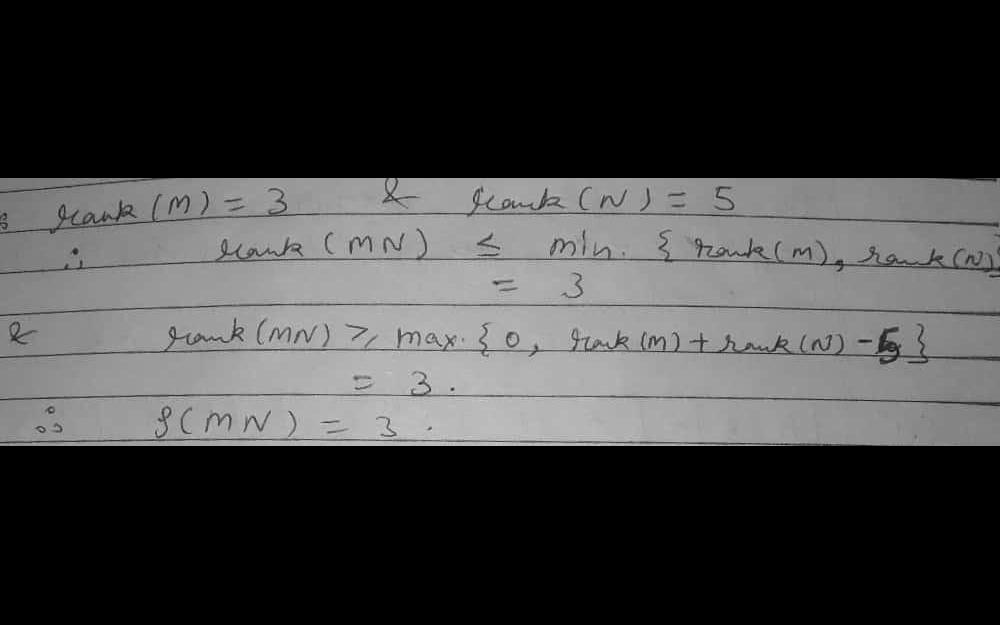 rank (M) = 3 & rank (N) = 5
∴ rank (MN) ≤ min. { rank(M), rank(N)}
= 3
& rank (MN) ≥ max. { 0, rank(M) + rank(N) - 5 }
= 3.
∴ ρ(MN) = 3.